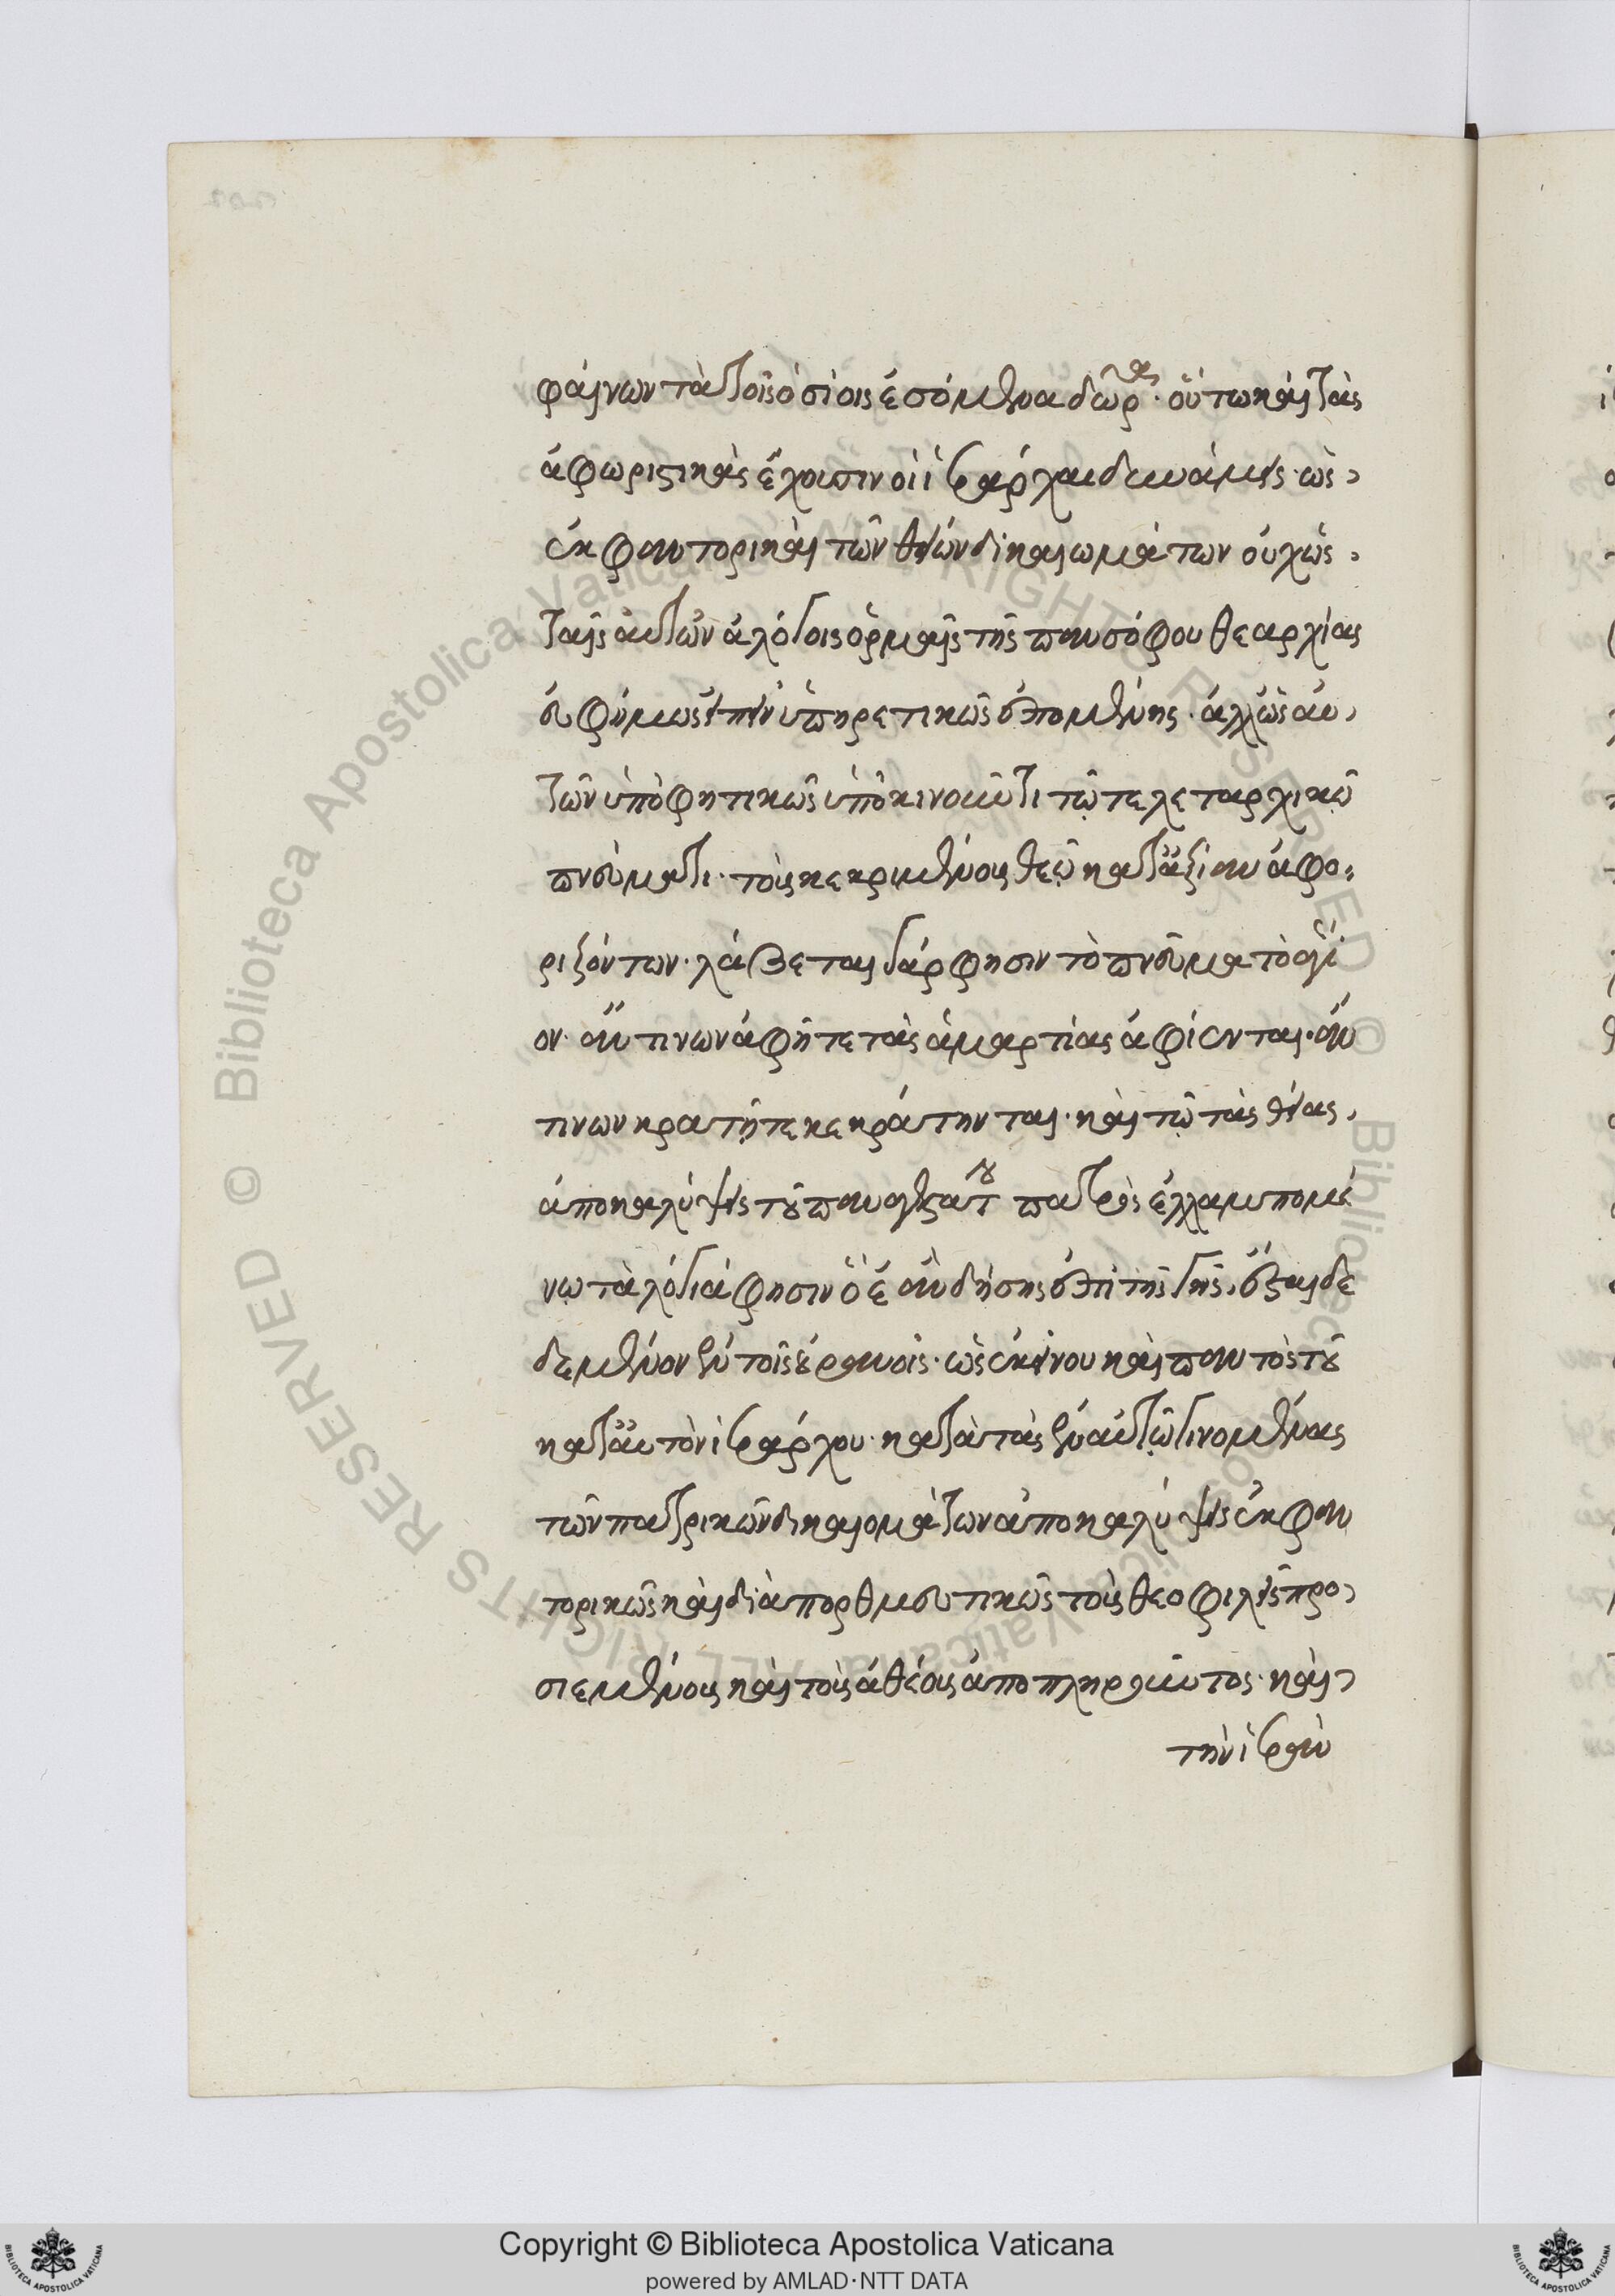 φαίνων τὰ τοῖς ὁσίοις ἐσόμενα δῶρα· οὕτω καὶ τὰς
ἀφωριστικὰς ἔχουσιν οἱ ἱεράρχαι δυνάμεις· ὡς
ἐκφαντορικαὶ τῶν θείων δικαιωμάτων οὐχ ὡς
ταῖς αὐτῶν ἀλόγοις ὁρμαῖς τῆς πανσόφου θεαρχίας
εὐφήμως εἰπεῖν ὑπηρετικῶς ἑπομένης· ἀλλ' ὡς αὐ
τῶν ὑποφητικῶς ὑποκινοῦντι τῷ τελεταρχικῷ
πνεύματι· τοὺς κεκριμένους θεῷ κατ' ἀξίαν ἀφο
ριζόντων· λάβετε γάρ φησιν τὸ πνεῦμα τὸ ἅγι
ον· ἄν τινων ἀφῆτε τὰς ἁμαρτίας ἀφίενται· ἄν
τινων κρατῆτε κεκράτηνται· καὶ τῷ τὰς θείας
ἀποκαλύψεις τοῦ παναγεστάτου πατρὸς ἐλλαμπομέ
νῳ τὰ λόγιά φησιν ὃ ἐὰν δήσῃς ἐπὶ τῆς γῆς, ἔσται δε
δεμένον ἐν τοῖς οὐρανοῖς· ὡς ἐκείνου καὶ παντὸς τοῦ
κατ' αὐτὸν ἱεράρχου· κατὰ τὰς ἐν αὐτῷ γινομένας
τῶν πατρικῶν δικαιομάτων ἀποκαλύψεις ἐκφαν
τορικῶς καὶ διαπορθμευτικῶς τοὺς θεοφιλεῖς προ
σιεμένους καὶ τοὺς ἀθέους ἀποπληροῦντος· καὶ
τὴν ἱερὰν
Copyright © Biblioteca Apostolica Vaticana
powered by AMLAD·NTT DATA